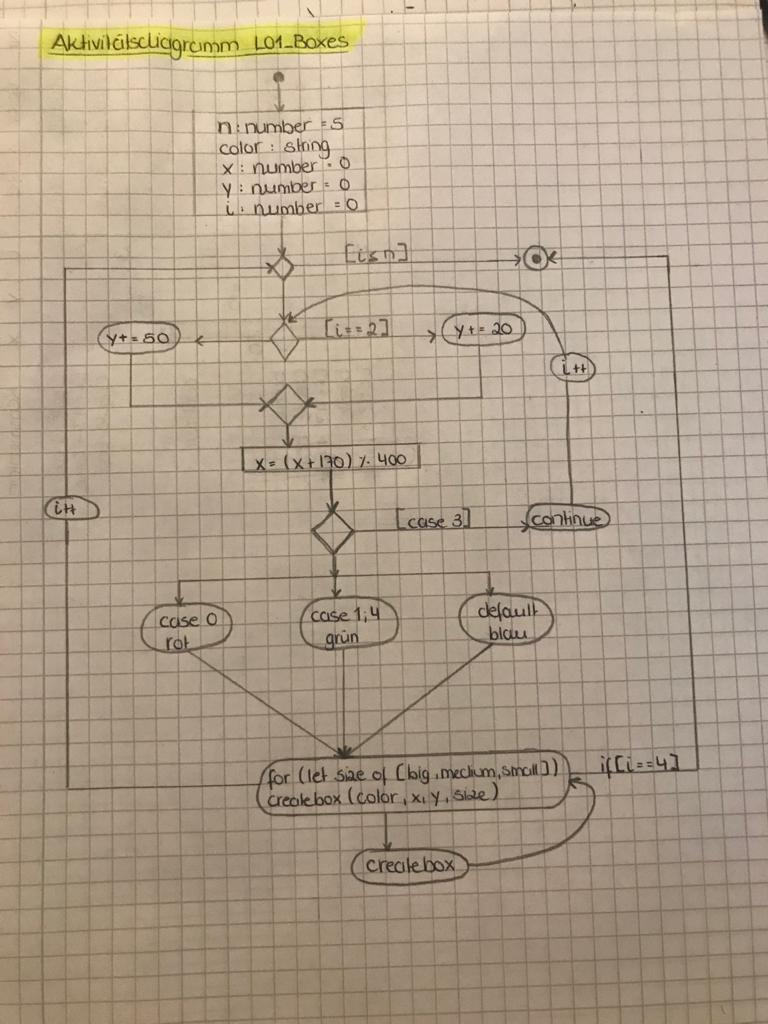 Aktivitätsdiagramm L01_Boxes
n: number = 5
color : string
x : number = 0
y : number = 0
i : number = 0
[i≤n]
y+=50
[i==2]
y+=20
i++
x = (x+170) % 400
i++
[case 3]
continue
case 0
rot
case 1,4
grün
default
blau
for (let size of [big, medium, small])
createbox (color, x, y, size)
if [i==4]
createbox